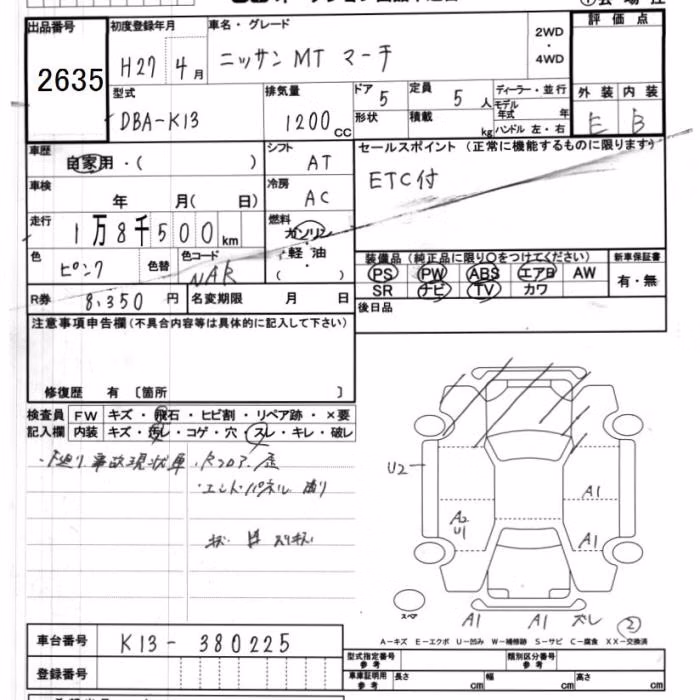 出品番号
2635
初度登録年月
H27 4月
車名・グレード
ニッサン MT マーチ
2WD
・
4WD
評価点
外装 内装
E B
型式
DBA-K13
排気量
1200cc
ドア 5
形状
定員 5人
積載 kg
ディーラー・並行
モデル年式 年
ハンドル 左・右
車歴
自家用・( )
シフト
AT
セールスポイント (正常に機能するものに限ります)
ETC付
車検
年 月( 日)
冷房
AC
走行
1万8千500km
燃料
ガソリン
・軽油・
( )
色
ピンク
色替
色コード
NAR
装備品 (純正品に限り○をつけてください)
PS PW ABS エアB AW
SR ナビ TV カワ
新車保証書
有・無
R券 8,350円
名変期限 月 日
後日品
注意事項申告欄(不具合内容等は具体的に記入して下さい)
修復歴 有 〔箇所 〕
検査員
記入欄
FW キズ・飛石・ヒビ割・リペア跡・×要
内装 キズ・汚レ・コゲ・穴・スレ・キレ・破レ
・下廻り事故現状車
・エンドパネル
U2
A2
U1
A1
A1
スペア
A1 A1 ズレ 2
A-キズ E-エクボ U-凹み W-補修跡 S-サビ C-腐食 XX-交換済
車台番号 K13-380225
登録番号
型式指定番号
参考
類別区分番号
参考
車庫証明用
参考
長さ cm
幅 cm
高さ cm